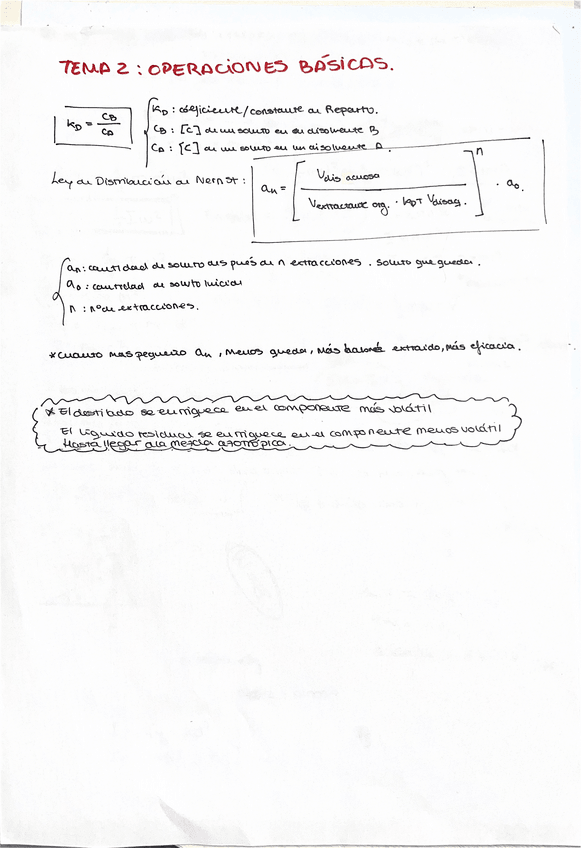 TEMA 2 : OPERACIONES BÁSICAS.
KD = CB / CA
KD : coeficiente/constante de Reparto.
CB : [C] de un soluto en el disolvente B
CA : [C] de un soluto en un disolvente A.
Ley de Distribución de Nernst :
an = [ Vdis acuosa / Vextractante org. · KD + Vdisaq. ]^n · a0
an : cantidad de soluto después de n extracciones . Soluto que queda .
a0 : cantidad de soluto inicial
n : nº de extracciones.
* Cuanto mas pequeño an , menos queda , más extraido, más eficacia .
* El destilado se enriquece en el componente más volátil
El líquido residual se enriquece en el componente menos volátil
Hasta llegar a la mezcla azotrópica.